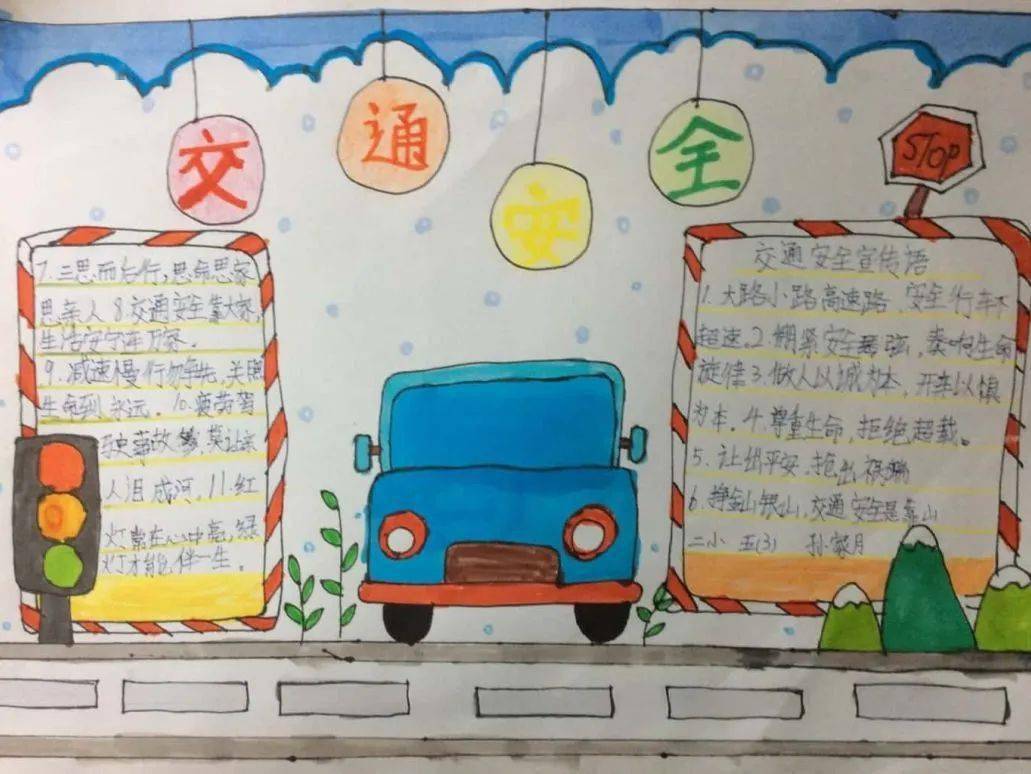 交通安全
STOP
交通安全宣传语
1.大路小路高速路、安全行车不
超速.2.绷紧安全弦,奏响生命
旋律3.做人以诚为本,开车以慎
为本.4.尊重生命,拒绝超载。
5.让出平安,抢出祸端
6.挣金山银山,交通安全是靠山
二小 五(3) 孙家月
7.三思而后行,思命思家
思亲人8.交通安全靠大家,
生活安宁连万家.
9.减速慢行勿争先,关照
生命到永远.10.疲劳驾
驶事故多,莫让亲
人泪成河.11.红
灯常在心中亮,绿
灯才能伴一生。